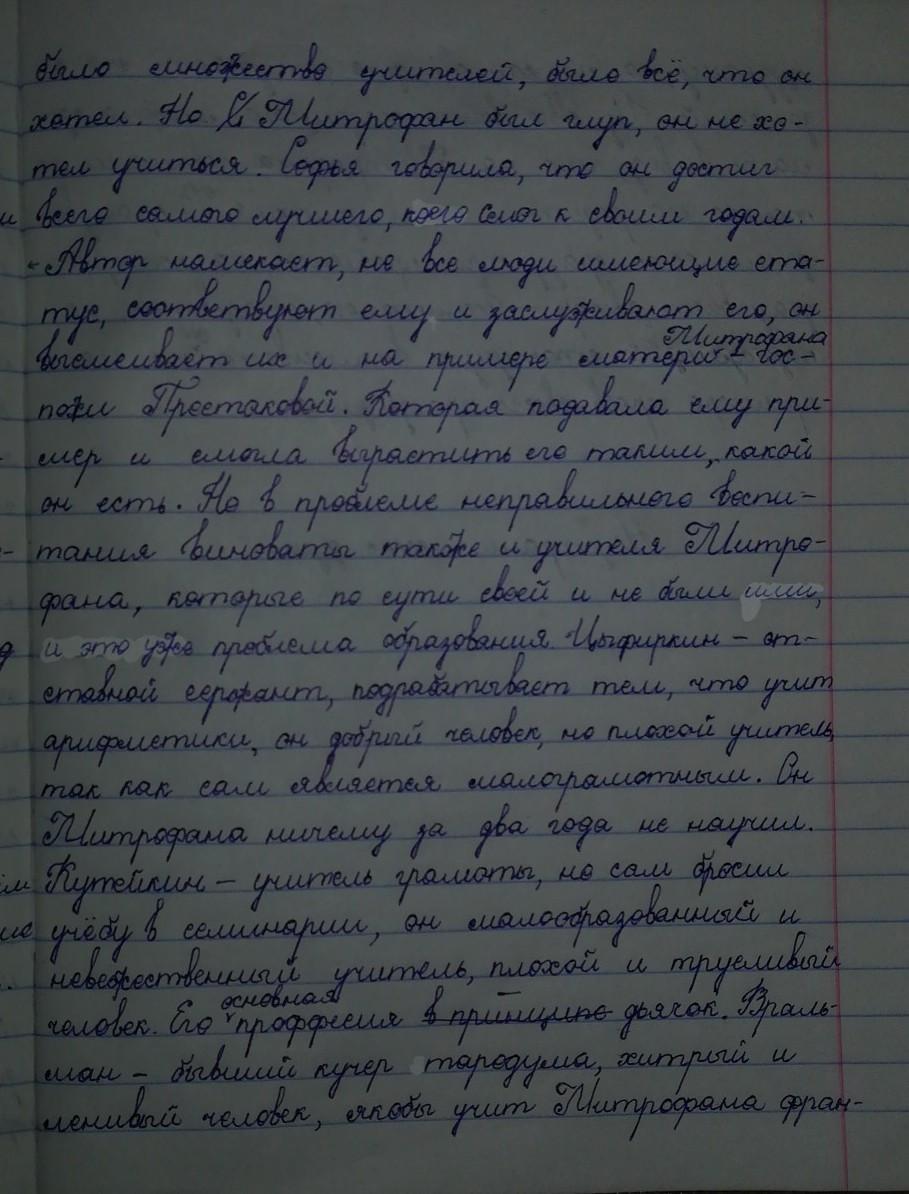 было множество учителей, было всё, что он
хотел. Но Митрофан был глуп, он не хо-
тел учиться. Софья говорила, что он достиг
и всего самого лучшего, коего смог к своим годам.
Автор намекает, не все люди имеющие ста-
тус, соответствуют ему и заслуживают его, он
высмеивает их и на примере матери Митрофана - гос-
пожи Простаковой. Которая подавала ему при-
мер и смогла вырастить его таким, какой
он есть. Но в проблеме неправильного воспи-
тания виноваты также и учителя Митро-
фана, которые по сути своей и не были ими,
и это уже проблема образования. Цыфиркин - от-
ставной сержант, подрабатывает тем, что учит
арифметики, он добрый человек, но плохой учитель,
так как сам является малограмотным. Он
Митрофана ничему за два года не научил.
Кутейкин - учитель грамоты, но сам бросил
учёбу в семинарии, он малообразованный и
невежественный учитель, плохой и трусливый
человек. Его основная проффесия в принципе дьячок. Враль-
ман - бывший кучер тародума, хитрый и
ленивый человек, якобы учит Митрофана фран-